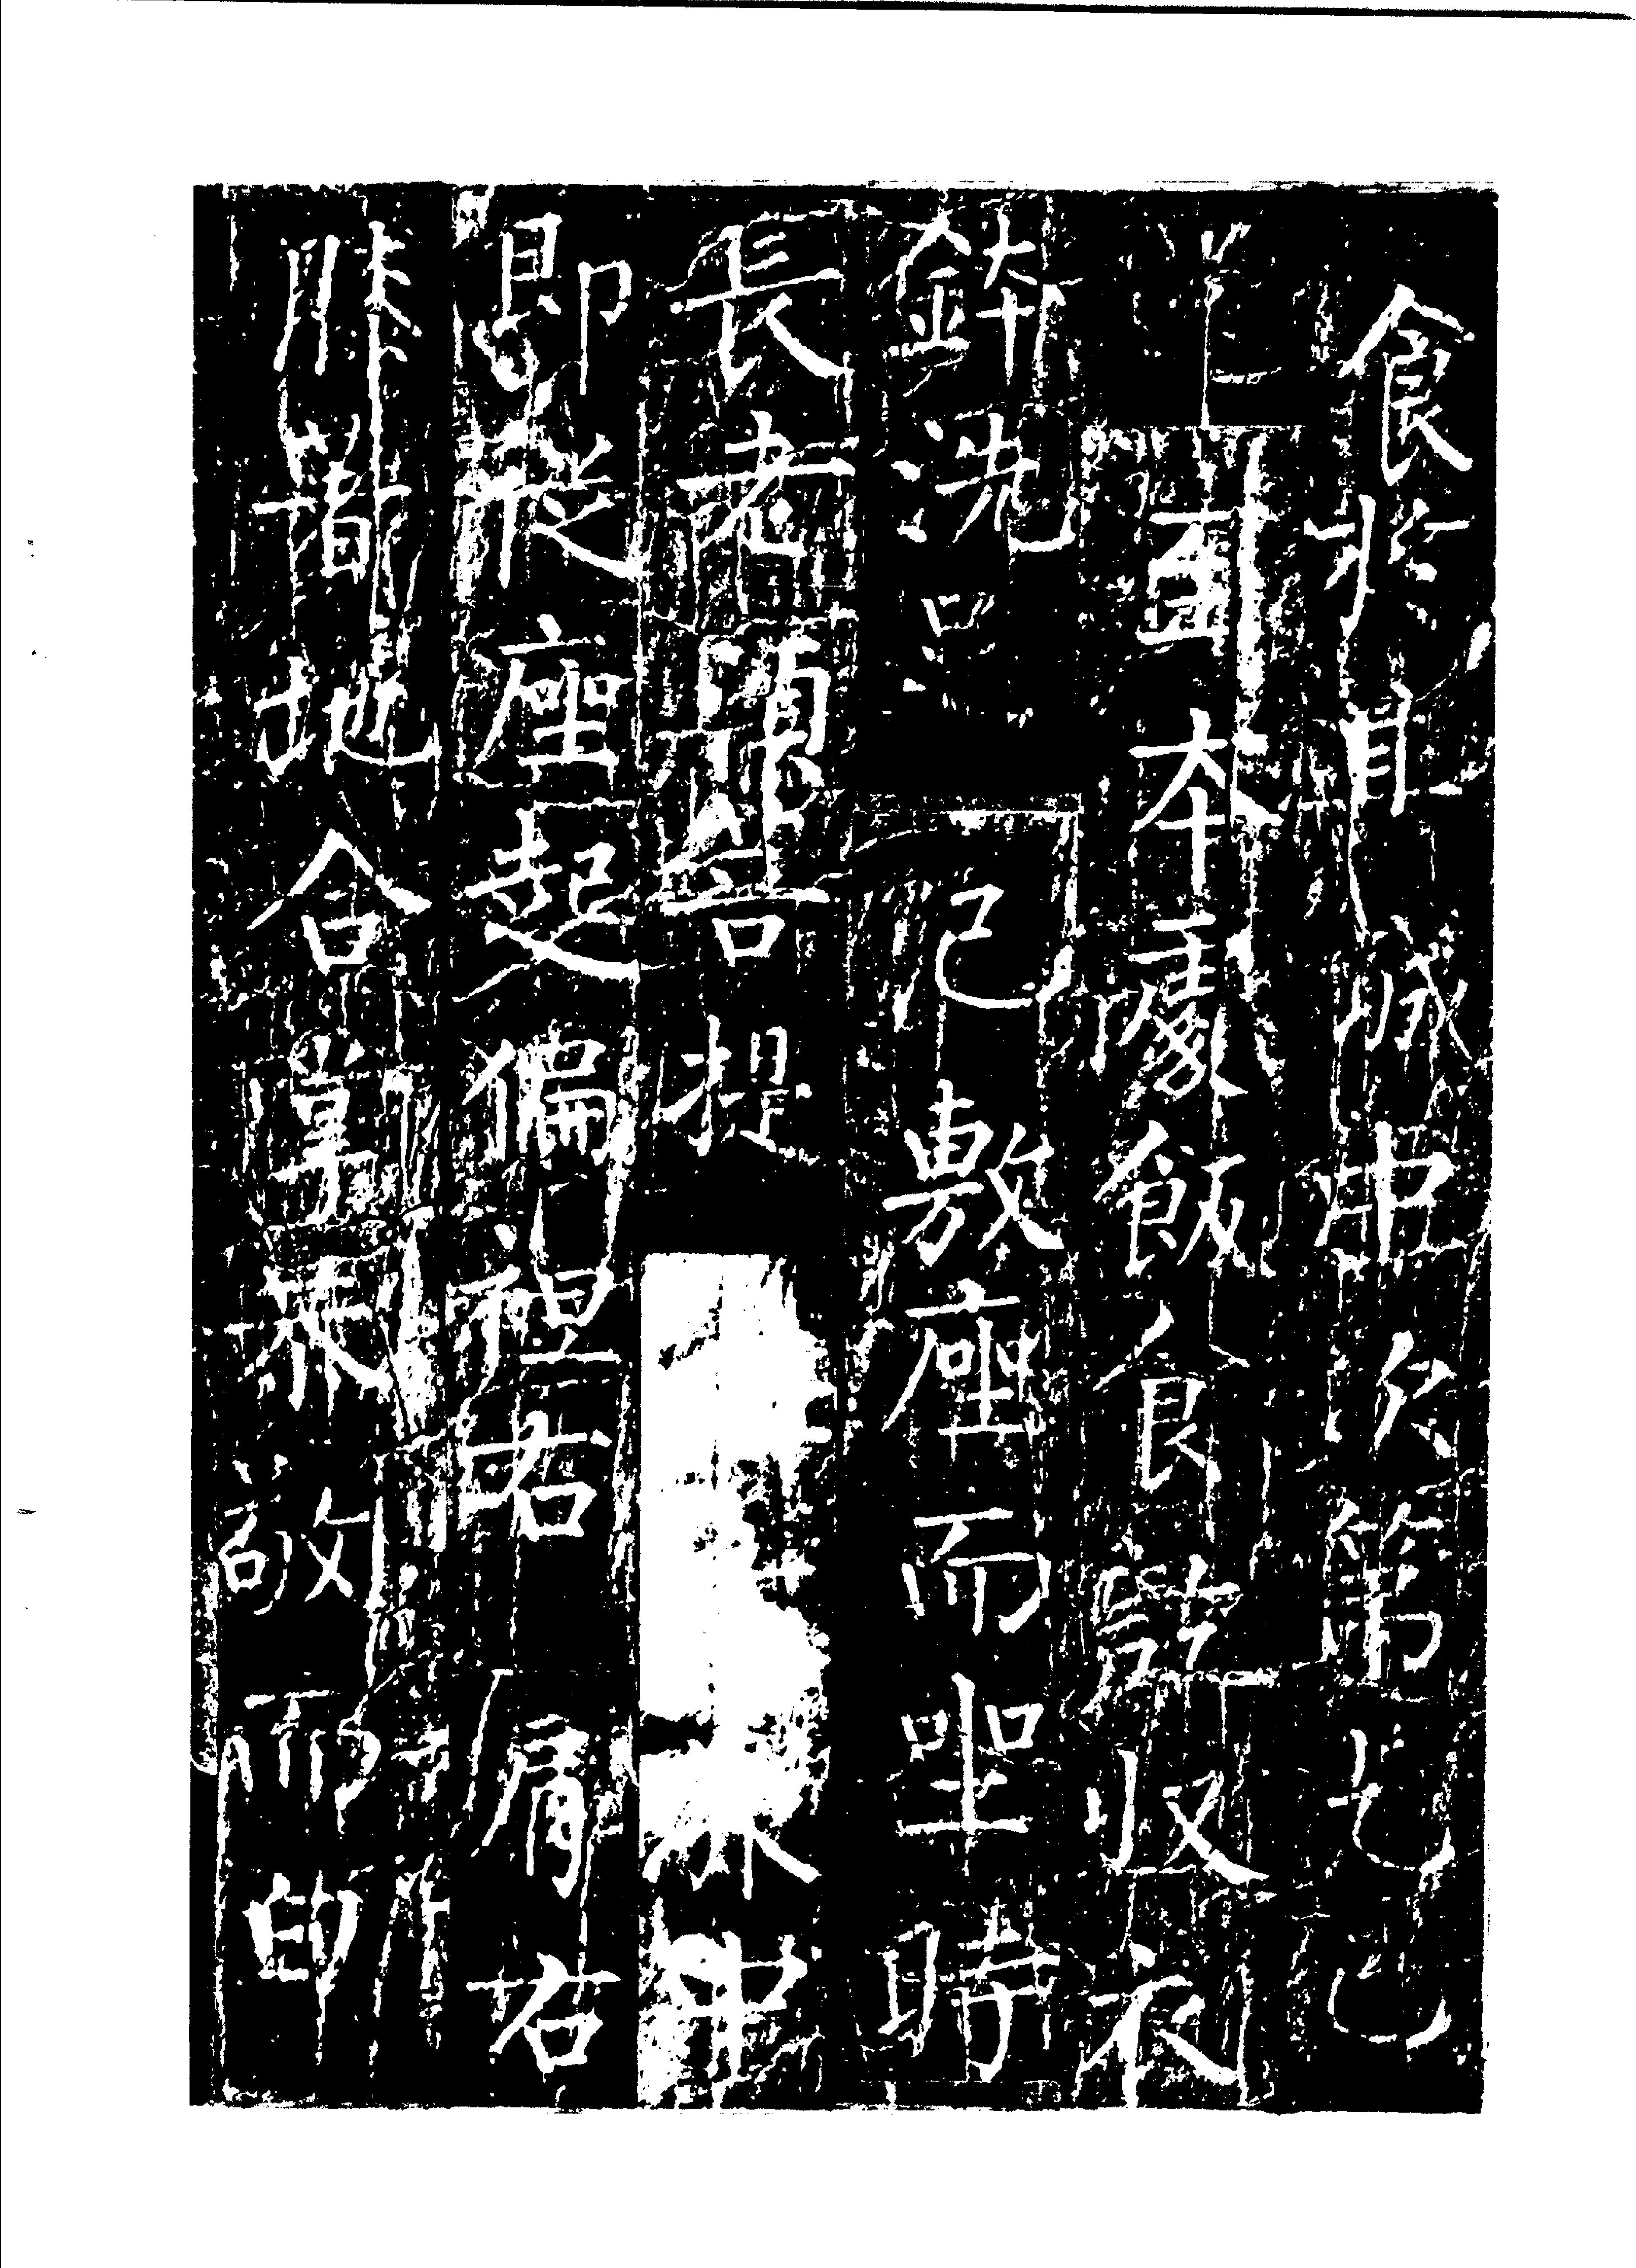 食於其城中次第乞已
至本處飯食訖收衣
鉢洗足已敷座而坐時
長老須菩提衆中
即從座起偏袒右肩右
膝著地合掌恭敬而白